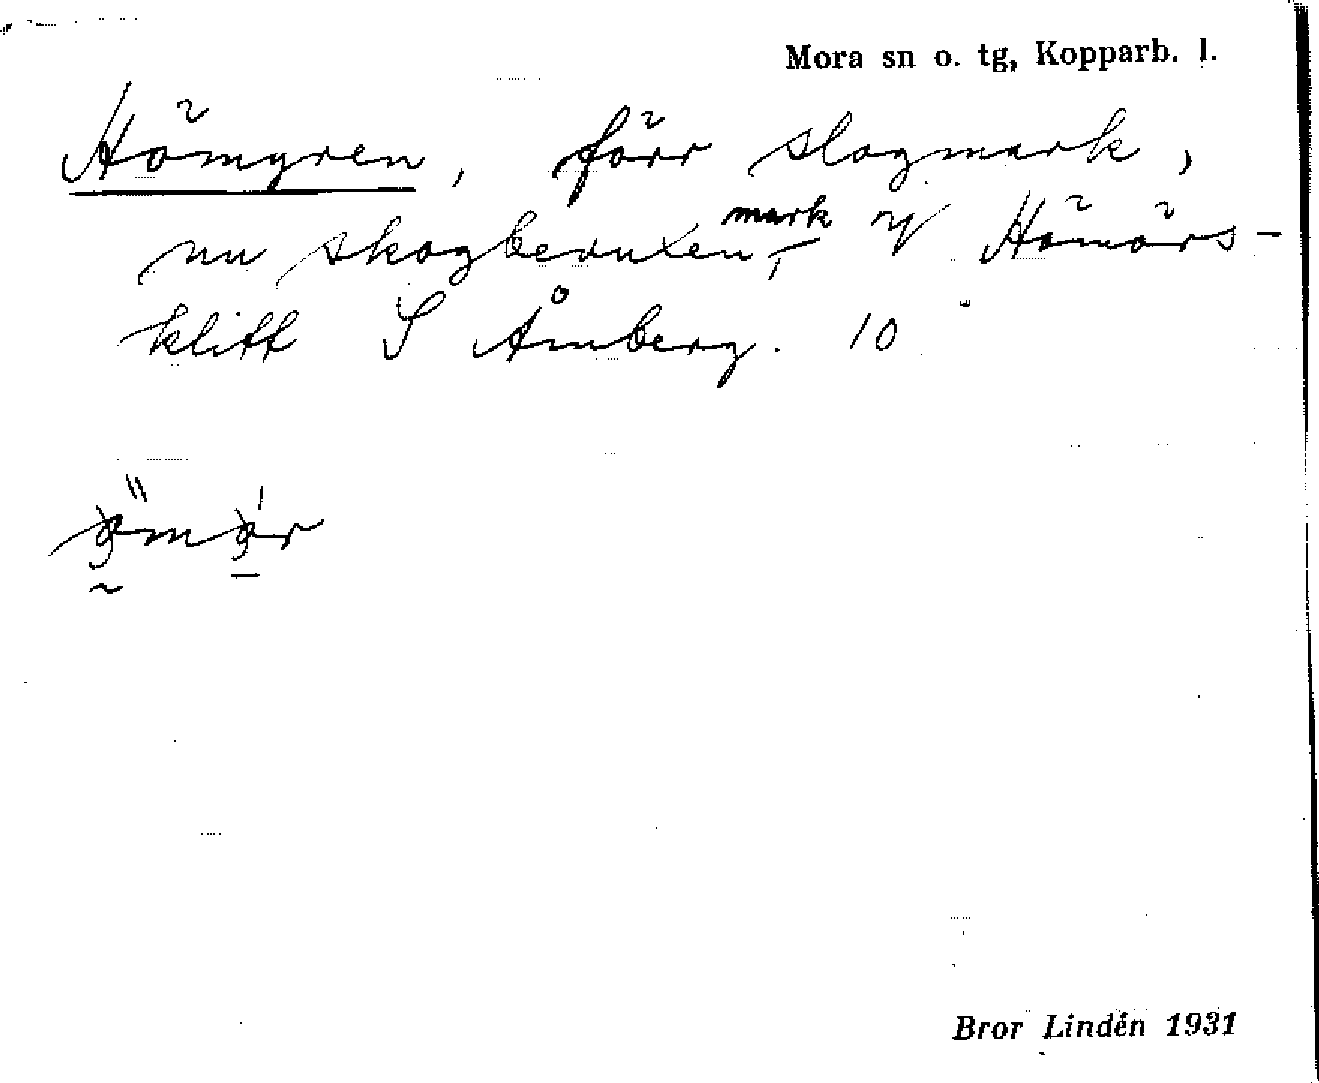 Mora sn o. tg, Kopparb. l.
Hömyren, förr slogmark,
nu skogbevuxen mark v Hömörs-
klitt S Åmberg. 10
ömör
Bror Lindén 1931